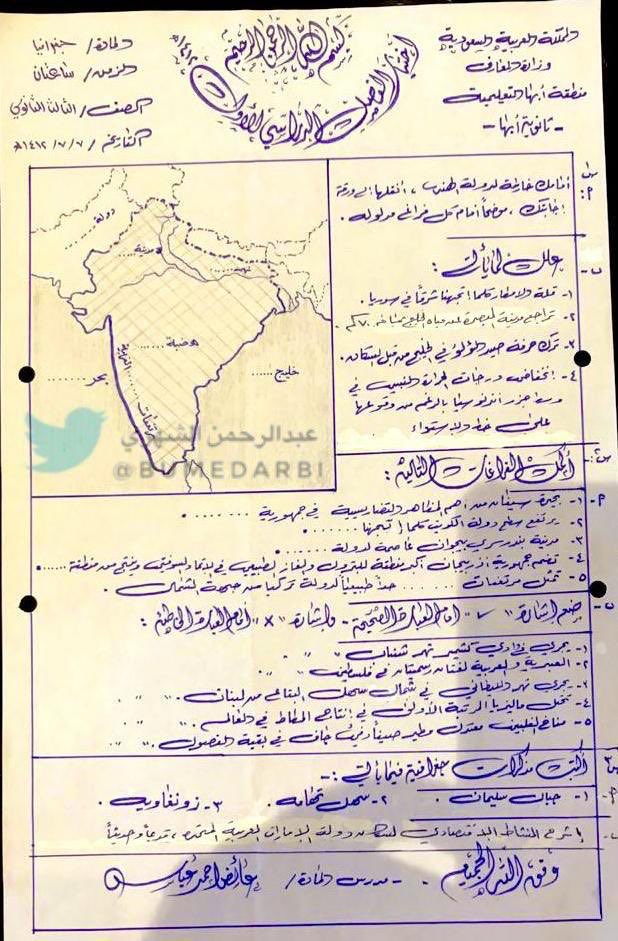 المملكة العربية السعودية
وزارة المعارف
منطقة أبها التعليمية
- ثانوية أبها -
بسم الله الرحمن الرحيم
اختبار الفصل الدراسي الأول
١٤١٢هـ
المادة / جغرافيا
الزمن / ساعتان
الصف / الثالث الثانوي
التاريخ / ٧ / ٧ / ١٤١٢هـ
س١
أ: أمامك خارطة لدولة الهند، انقلها إلى ورقة
إجابتك، موضحاً أمام كل فراغ مدلوله.
ب- علل لما يأتي:
١- قلة الأمطار كلما اتجهنا شرقاً في سوريا.
٢- تراجع مدينة البصرة عن مياه الخليج بمسافة ٧٠كم.
٣- ترك حرفة صيد اللؤلؤ في الخليج من قبل السكان.
٤- انخفاض درجات الحرارة النسبي في
وسط جزر اندونوسيا بالرغم من وقوعها
على خط الاستواء
دولة ......
مدينة ......
نهر
هضبة ......
مرتفعات
الغربية
بحر ......
خليج ......
عبدالرحمن الشهري
@BUMEDARBI
س٢- أكمل الفراغات التالية:
أ- ١- بحيرة سيفان من أهم المظاهر التضاريسية في جمهورية .......
٢- يرتفع سطح دولة الكويت كلما اتجهنا ......
٣- مدينة بندر سري بيجوان عاصمة لدولة ......
٤- تضم جمهورية أذربيجان أكبر منطقة للبترول والغاز الطبيعي في الاتحاد السوفيتي وينتج من منطقة .....
٥- تمثل مرتفعات ...... حداً طبيعياً لدولة تركيا من جهة الشمال.
ب- ضع إشارة " ✓ " أمام العبارة الصحيحة - وإشارة " × " أمام العبارة الخاطئة:
١- يجري في وادي كشمير نهر شناب " " .
٢- العبرية والعربية لغتان رسميتان في فلسطين " " .
٣- يجري نهر الليطاني في شمال سهل البقاع من لبنان. " " .
٤- تحتل ماليزيا المرتبة الأولى في إنتاج المطاط في العالم. " " .
٥- مناخ الفلبين معتدل مطير صيفاً دفئ جاف في بقية الفصول. " " .
س٣ اكتب مذكرات جغرافية فيما يأتي :-
أ- ١- جبال سليمان. ٢- سهل تهامه. ٣- زونغاريه.
ب- اشرح النشاط الاقتصادي لسكان دولة الإمارات العربية المتحدة، قديماً وحديثاً
وفق الله الجميع - مدرس المادة / عائض أحمد عباس